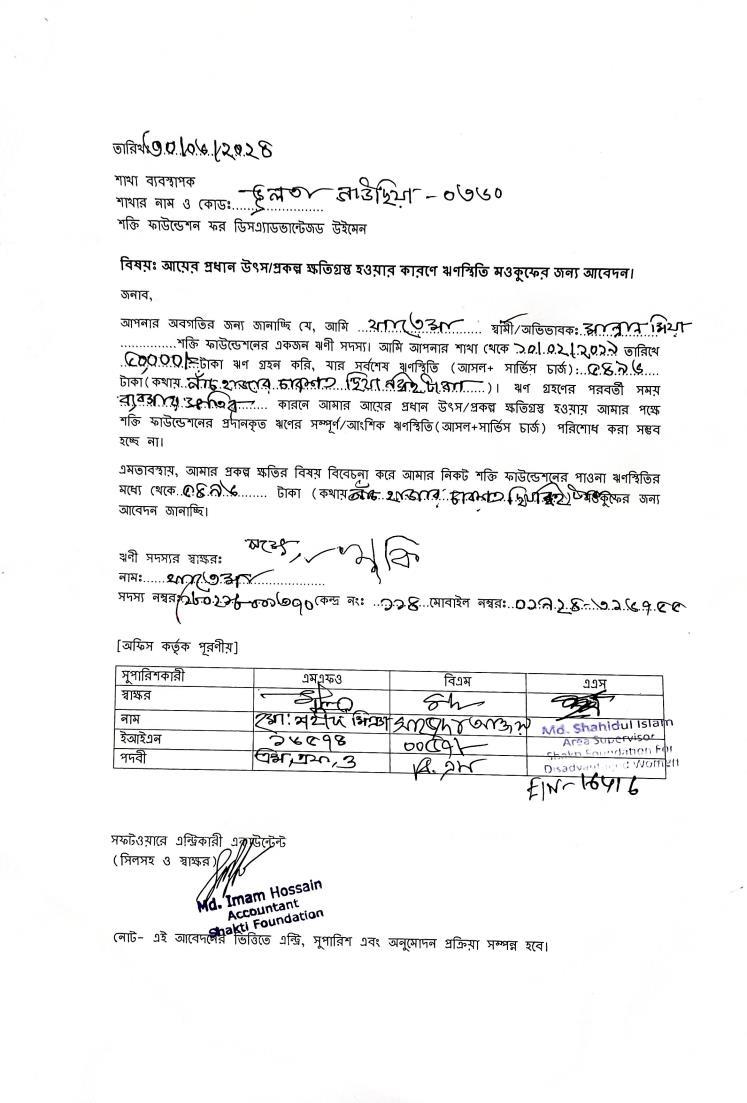 তারিখঃ
শাখা ব্যবস্থাপক
শাখার নাম ও কোডঃ ভুলতা - ০৩৬০
শক্তি ফাউন্ডেশন ফর ডিসএ্যাডভান্টেজড উইমেন
বিষয়ঃ আয়ের প্রধান উৎস/প্রকল্প ক্ষতিগ্রস্থ হওয়ার কারণে ঋণস্থিতি মওকুফের জন্য আবেদন।
জনাব,
আপনার অবগতির জন্য জানাচ্ছি যে, আমি ফাতেমা স্বামী/অভিভাবকঃ মিয়া
শক্তি ফাউন্ডেশনের একজন ঋণী সদস্য। আমি আপনার শাখা থেকে তারিখে
টাকা ঋণ গ্রহন করি, যার সর্বশেষ ঋণস্থিতি (আসল+ সার্ভিস চার্জ): ৫৪৭৬
টাকা(কথায় পাঁচ হাজার চারশত টাকা)। ঋণ গ্রহণের পরবর্তী সময়
ব্যবসায় ক্ষতির কারনে আমার আয়ের প্রধান উৎস/প্রকল্প ক্ষতিগ্রস্থ হওয়ায় আমার পক্ষে
শক্তি ফাউন্ডেশনের প্রদানকৃত ঋণের সম্পূর্ণ/আংশিক ঋণস্থিতি(আসল+সার্ভিস চার্জ) পরিশোধ করা সম্ভব
হচ্ছে না।
এমতাবস্থায়, আমার প্রকল্প ক্ষতির বিষয় বিবেচনা করে আমার নিকট শক্তি ফাউন্ডেশনের পাওনা ঋণস্থিতির
মধ্যে থেকে ৫৪৭৬ টাকা (কথায় পাঁচ হাজার চারশত মওকুফের জন্য
আবেদন জানাচ্ছি।
ঋণী সদস্যর স্বাক্ষরঃ
নামঃ ফাতেমা
সদস্য নম্বরঃ কেন্দ্র নংঃ মোবাইল নম্বরঃ
[অফিস কর্তৃক পূরণীয়]
সুপারিশকারী এমএফও বিএম এএস
স্বাক্ষর
নাম মো: শহীদ মিঞা Md. Shahidul Islam
ইআইএন ১৬৫৭৪ Area Supervisor
Shakti Foundation For
পদবী এম,এফ,ও বি.এম Disadvantaged Women
EIN-16416
সফটওয়ারে এন্ট্রিকারী একাউন্টেন্ট
(সিলসহ ও স্বাক্ষর)
Md. Imam Hossain
Accountant
Shakti Foundation
নোট- এই আবেদনের ভিত্তিতে এন্ট্রি, সুপারিশ এবং অনুমোদন প্রক্রিয়া সম্পন্ন হবে।